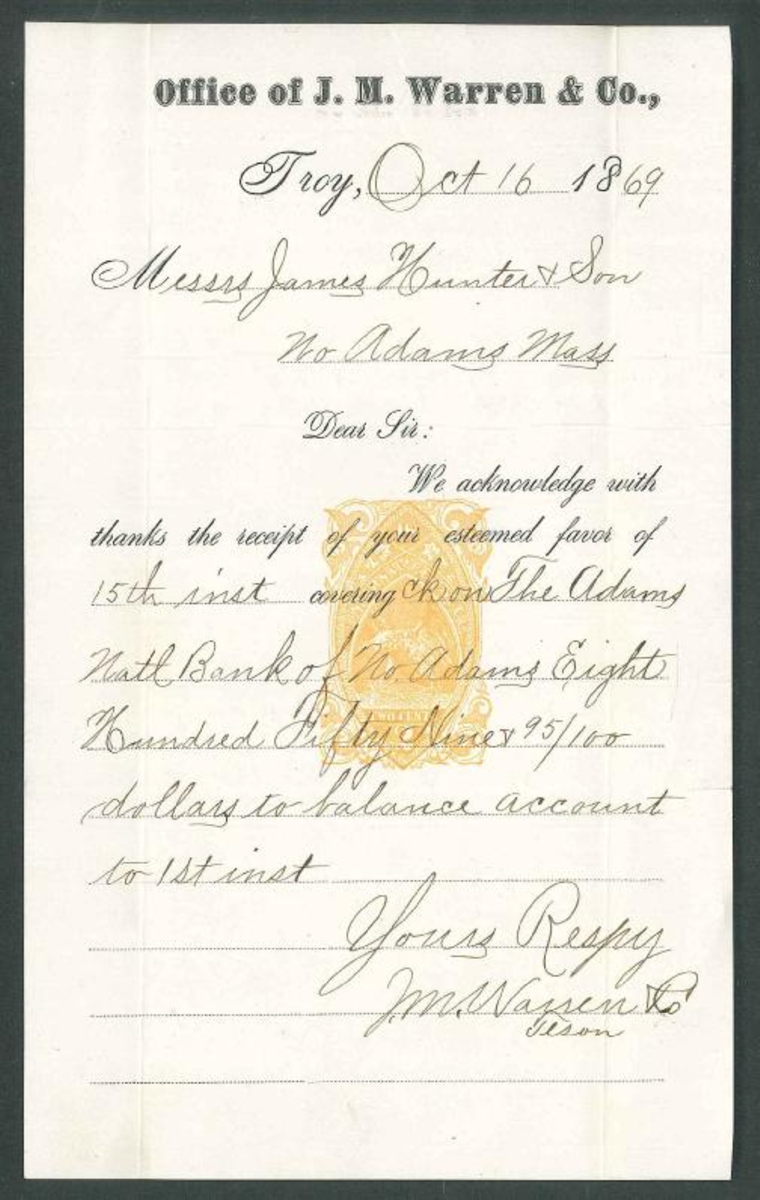 Office of J. M. Warren & Co.,
Troy, Oct 16 1869
Messrs James Hunter & Son
No Adams Mass
Dear Sir:
We acknowledge with
thanks the receipt of your esteemed favor of
15th inst covering ck on The Adams
Natl Bank of No. Adams Eight
Hundred Fifty Nine & 95/100
dollars to balance account
to 1st inst
Yours Respy
J.M. Warren & Co
TWO CENT